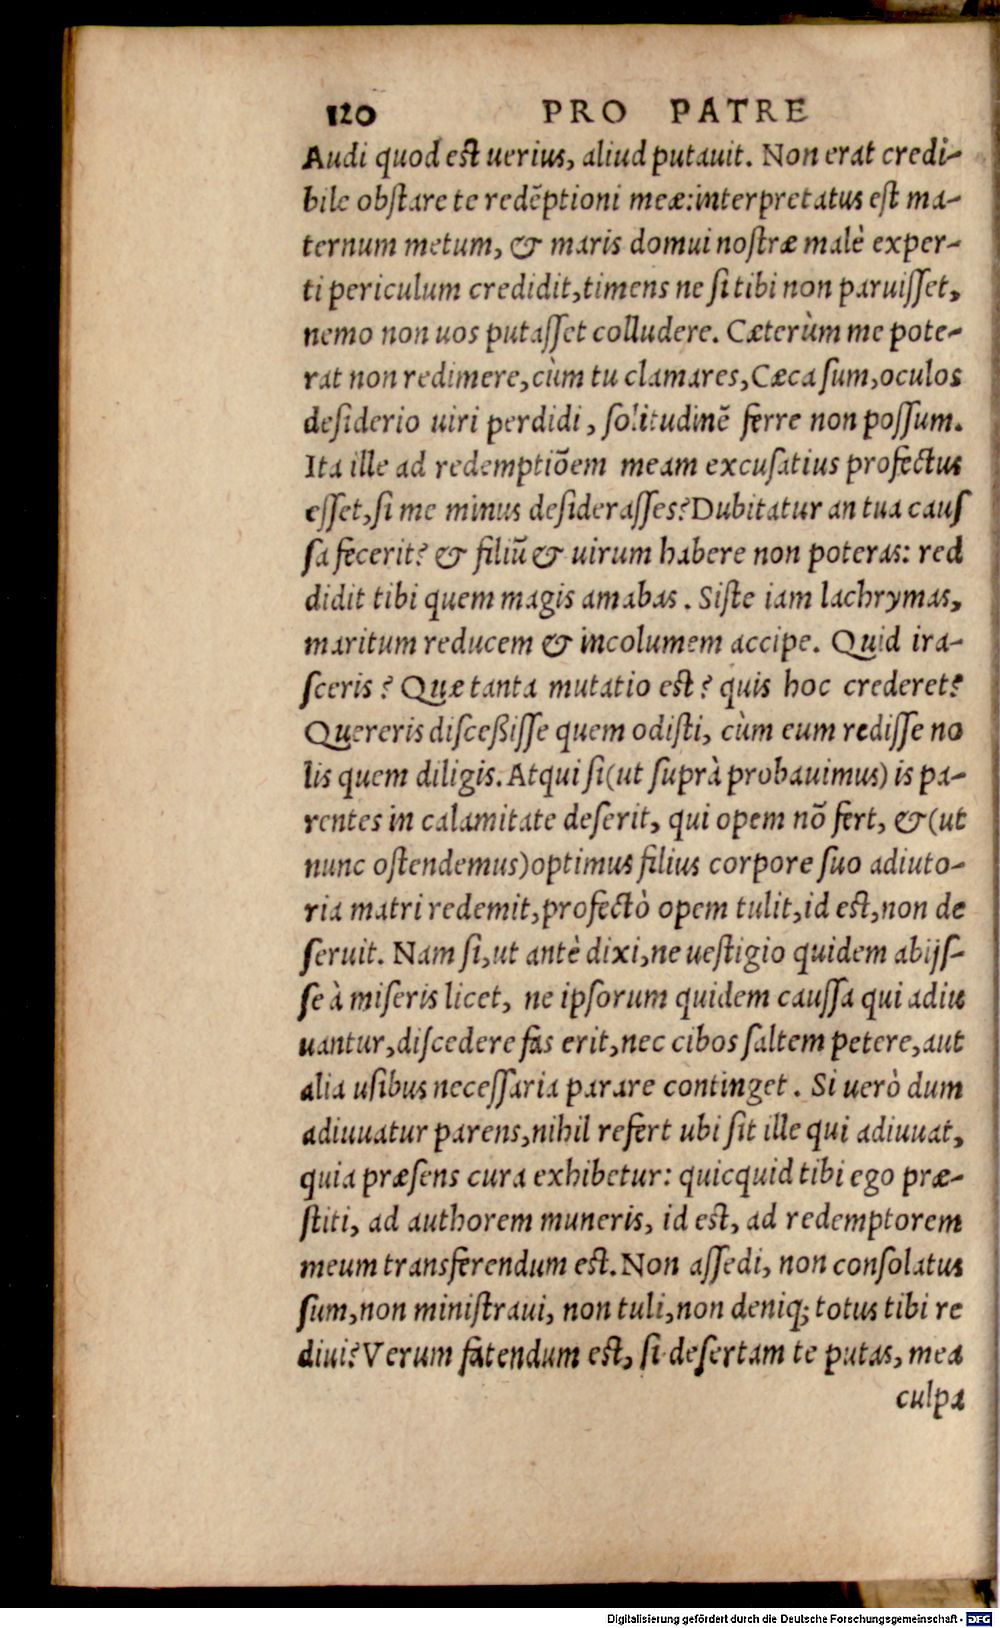 120 PRO PATRE
Audi quod est uerius, aliud putauit. Non erat credi-
bile obstare te redẽptioni meæ:interpretatus est ma-
ternum metum, & maris domui nostræ malè exper-
ti periculum credidit,timens ne si tibi non paruisset,
nemo non uos putasset colludere. Cæterùm me pote-
rat non redimere,cùm tu clamares,Cæca sum,oculos
desiderio uiri perdidi, solitudinẽ ferre non possum.
Ita ille ad redemptiõem meam excusatius profectus
esset,si me minus desiderasses?Dubitatur an tua caus
sa fecerit? & filiũ & uirum habere non poteras: red
didit tibi quem magis amabas. Siste iam lachrymas,
maritum reducem & incolumem accipe. Quid ira-
sceris? Quæ tanta mutatio est? quis hoc crederet?
Quereris discessisse quem odisti, cùm eum redisse no
lis quem diligis. Atqui si(ut suprà probauimus) is pa-
rentes in calamitate deserit, qui opem nõ fert, &(ut
nunc ostendemus)optimus filius corpore suo adiuto-
ria matri redemit,profectò opem tulit,id est,non de
seruit. Nam si,ut antè dixi,ne uestigio quidem abijs-
se à miseris licet, ne ipsorum quidem caussa qui adiu
uantur,discedere fas erit,nec cibos saltem petere,aut
alia usibus necessaria parare continget. Si uerò dum
adiuuatur parens,nihil refert ubi sit ille qui adiuuat,
quia præsens cura exhibetur: quicquid tibi ego præ-
stiti, ad authorem muneris, id est, ad redemptorem
meum transferendum est. Non assedi, non consolatus
sum,non ministraui, non tuli,non deniq; totus tibi re
diui?Verum fatendum est, si desertam te putas, mea
culpa
Digitalisierung gefördert durch die Deutsche Forschungsgemeinschaft - DFG